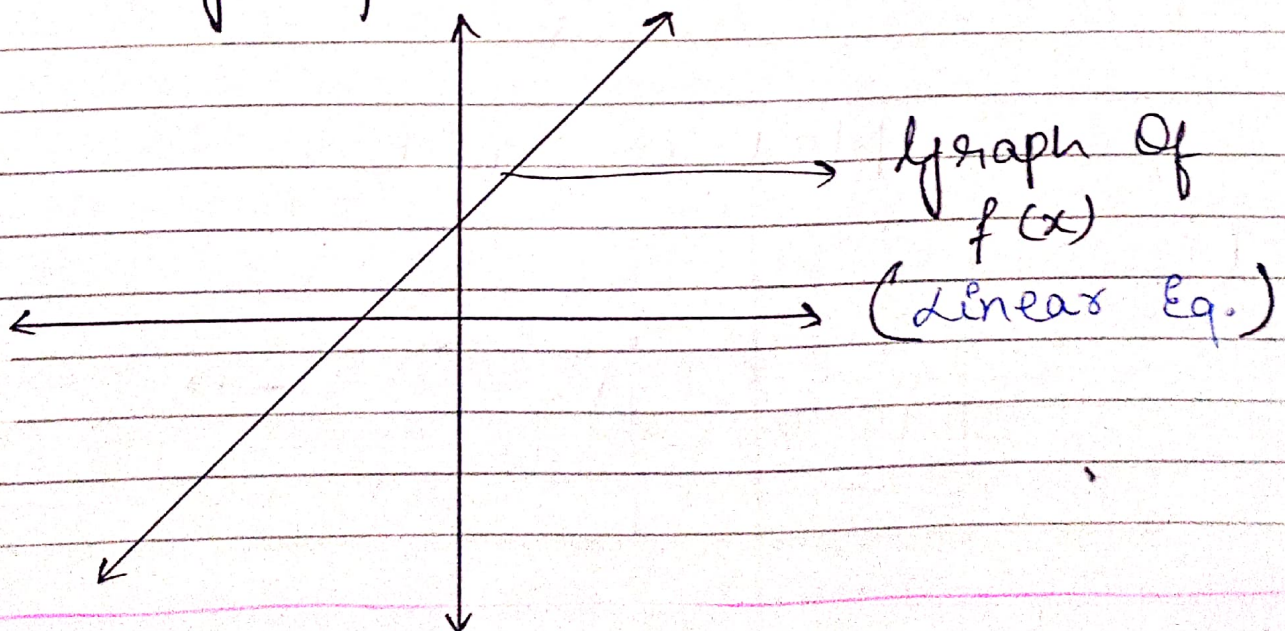 Graph Of
f(x)
(Linear Eq.)